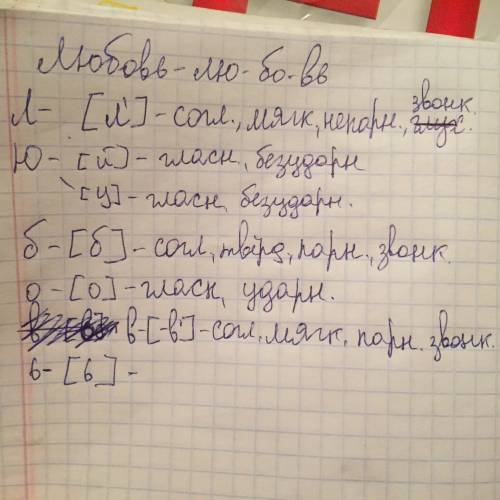 Любовь - лю-бо-вь
Л - [л'] - согл., мягк, непарн., звонк. глух.
Ю - [й] - гласн, безударн
[у] - гласн, безударн.
б - [б] - согл, твёрд, парн., звонк.
о - [о] - гласн, ударн.
в - [в'] - согл. мягк. парн. звонк.
ь - [ь] -